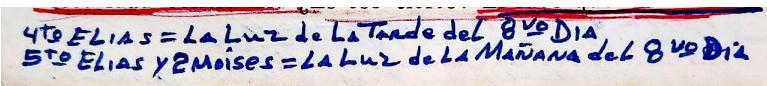 4to ELIAS = LA Luz de La Tarde del 8vo DIA
5to ELIAS y 2 Moises = LA Luz de LA MAÑANA del 8vo Dia